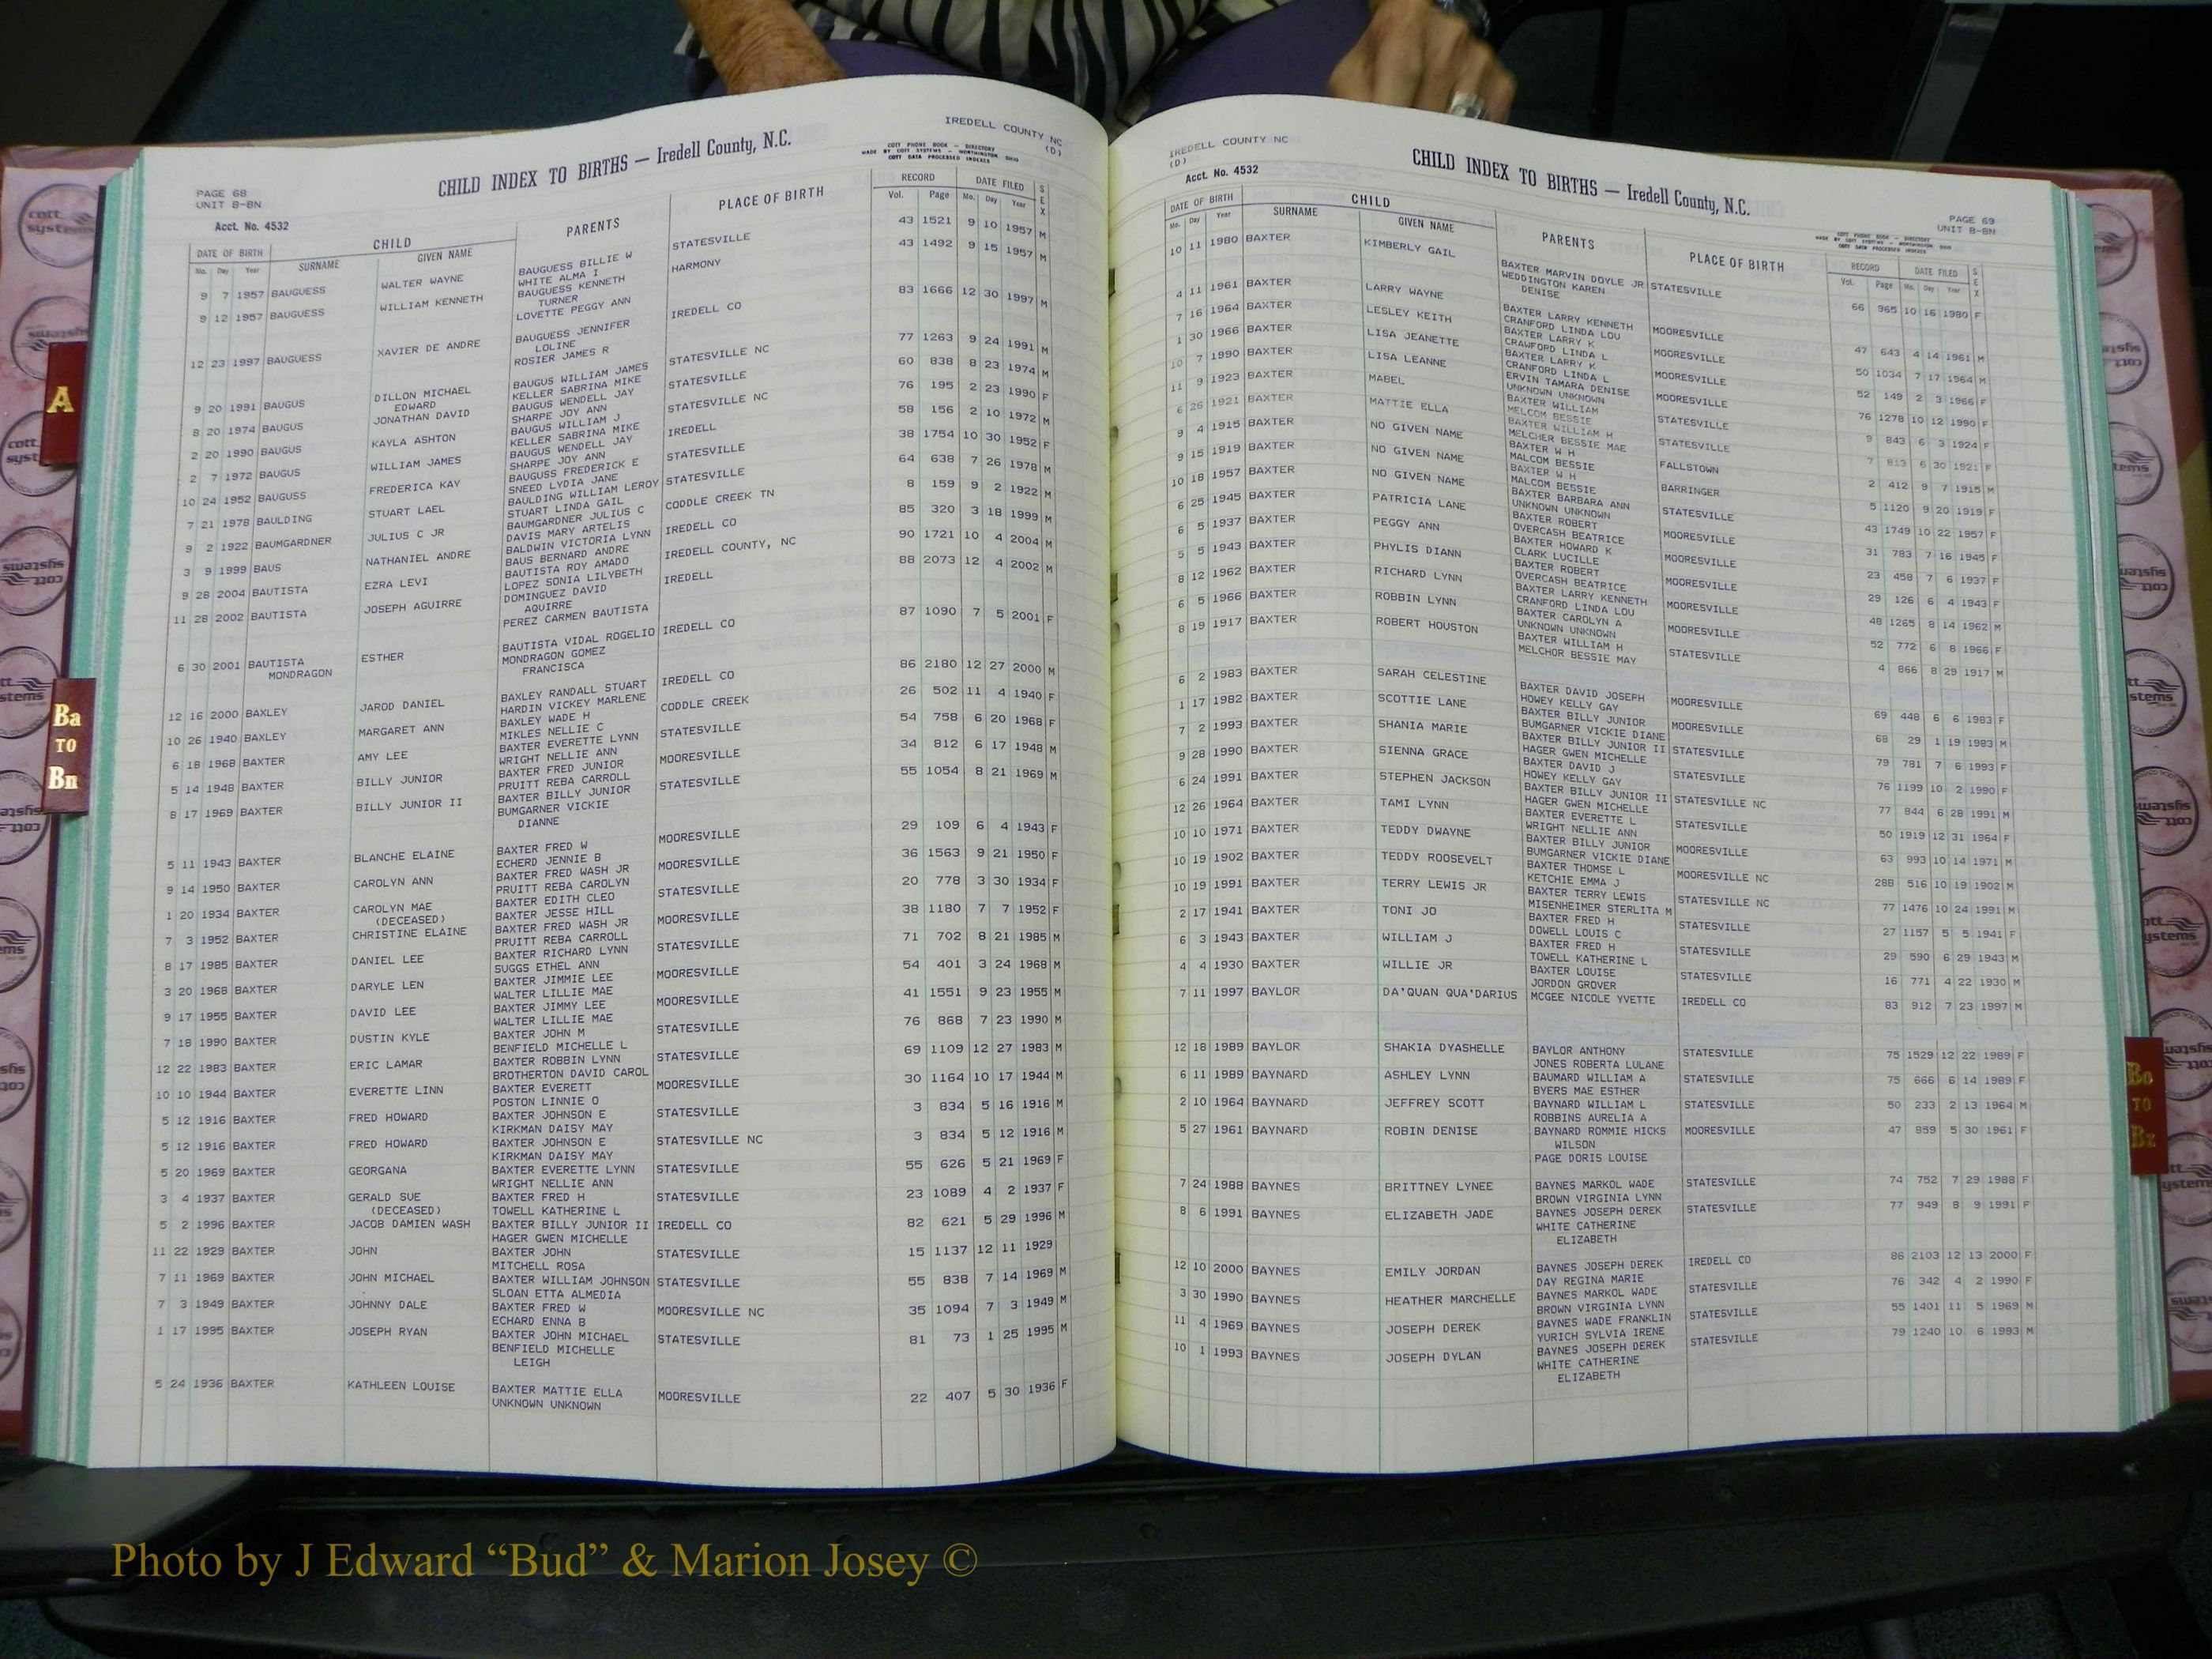 IREDELL COUNTY NC
(D)
CHILD INDEX TO BIRTHS — Iredell County, N.C.
COTT PHONE BOOK — DIRECTORY
MADE BY COTT SYSTEMS — WORTHINGTON OHIO
COTT DATA PROCESSED INDEXES
PAGE 68
UNIT B-BN
Acct. No. 4532
DATE OF BIRTH CHILD PARENTS PLACE OF BIRTH RECORD DATE FILED SEX
Mo. Day Year SURNAME GIVEN NAME Vol. Page Mo. Day Year
9 7 1957 BAUGUESS WALTER WAYNE BAUGUESS BILLIE W STATESVILLE 43 1521 9 10 1957 M
WHITE ALMA I
9 12 1957 BAUGUESS WILLIAM KENNETH BAUGUESS KENNETH HARMONY 43 1492 9 15 1957 M
TURNER
LOVETTE PEGGY ANN
12 23 1997 BAUGUESS XAVIER DE ANDRE BAUGUESS JENNIFER IREDELL CO 83 1666 12 30 1997 M
LOLINE
ROSIER JAMES R
9 20 1991 BAUGUS DILLON MICHAEL BAUGUS WILLIAM JAMES STATESVILLE NC 77 1263 9 24 1991 M
EDWARD KELLER SABRINA MIKE
8 20 1974 BAUGUS JONATHAN DAVID BAUGUS WENDELL JAY STATESVILLE 60 838 8 23 1974 M
SHARPE JOY ANN
2 20 1990 BAUGUS KAYLA ASHTON BAUGUS WILLIAM J STATESVILLE NC 76 195 2 23 1990 F
KELLER SABRINA MIKE
2 7 1972 BAUGUS WILLIAM JAMES BAUGUS WENDELL JAY IREDELL 58 156 2 10 1972 M
SHARPE JOY ANN
10 24 1952 BAUGUSS FREDERICA KAY BAUGUSS FREDERICK E STATESVILLE 38 1754 10 30 1952 F
SNEED LYDIA JANE
7 21 1978 BAULDING STUART LAEL BAULDING WILLIAM LEROY STATESVILLE 64 638 7 26 1978 M
STUART LINDA GAIL
9 2 1922 BAUMGARDNER JULIUS C JR BAUMGARDNER JULIUS C CODDLE CREEK TN 8 159 9 2 1922 M
DAVIS MARY ARTELIS
3 9 1999 BAUS NATHANIEL ANDRE BALDWIN VICTORIA LYNN IREDELL CO 85 320 3 18 1999 M
BAUS BERNARD ANDRE
9 28 2004 BAUTISTA EZRA LEVI BAUTISTA ROY AMADO IREDELL COUNTY, NC 90 1721 10 4 2004 M
LOPEZ SONIA LILYBETH
11 28 2002 BAUTISTA JOSEPH AGUIRRE DOMINGUEZ DAVID IREDELL 88 2073 12 4 2002 M
AQUIRRE
PEREZ CARMEN BAUTISTA
6 30 2001 BAUTISTA ESTHER BAUTISTA VIDAL ROGELIO IREDELL CO 87 1090 7 5 2001 F
MONDRAGON MONDRAGON GOMEZ
FRANCISCA
12 16 2000 BAXLEY JAROD DANIEL BAXLEY RANDALL STUART IREDELL CO 86 2180 12 27 2000 M
HARDIN VICKEY MARLENE
10 26 1940 BAXLEY MARGARET ANN BAXLEY WADE H CODDLE CREEK 26 502 11 4 1940 F
MIKLES NELLIE C
6 18 1968 BAXTER AMY LEE BAXTER EVERETTE LYNN STATESVILLE 54 758 6 20 1968 F
WRIGHT NELLIE ANN
5 14 1948 BAXTER BILLY JUNIOR BAXTER FRED JUNIOR MOORESVILLE 34 812 6 17 1948 M
PRUITT REBA CARROLL
8 17 1969 BAXTER BILLY JUNIOR II BAXTER BILLY JUNIOR STATESVILLE 55 1054 8 21 1969 M
BUMGARNER VICKIE
DIANNE
5 11 1943 BAXTER BLANCHE ELAINE BAXTER FRED W MOORESVILLE 29 109 6 4 1943 F
ECHERD JENNIE B
9 14 1950 BAXTER CAROLYN ANN BAXTER FRED WASH JR MOORESVILLE 36 1563 9 21 1950 F
PRUITT REBA CAROLYN
1 20 1934 BAXTER CAROLYN MAE BAXTER EDITH CLEO STATESVILLE 20 778 3 30 1934 F
(DECEASED) BAXTER JESSE HILL
7 3 1952 BAXTER CHRISTINE ELAINE BAXTER FRED WASH JR MOORESVILLE 38 1180 7 7 1952 F
PRUITT REBA CARROLL
8 17 1985 BAXTER DANIEL LEE BAXTER RICHARD LYNN STATESVILLE 71 702 8 21 1985 M
SUGGS ETHEL ANN
3 20 1968 BAXTER DARYLE LEN BAXTER JIMMIE LEE MOORESVILLE 54 401 3 24 1968 M
WALTER LILLIE MAE
9 17 1955 BAXTER DAVID LEE BAXTER JIMMY LEE MOORESVILLE 41 1551 9 23 1955 M
WALTER LILLIE MAE
7 18 1990 BAXTER DUSTIN KYLE BAXTER JOHN M STATESVILLE 76 868 7 23 1990 M
BENFIELD MICHELLE L
12 22 1983 BAXTER ERIC LAMAR BAXTER ROBBIN LYNN STATESVILLE 69 1109 12 27 1983 M
BROTHERTON DAVID CAROL
10 10 1944 BAXTER EVERETTE LINN BAXTER EVERETT MOORESVILLE 30 1164 10 17 1944 M
POSTON LINNIE O
5 12 1916 BAXTER FRED HOWARD BAXTER JOHNSON E STATESVILLE 3 834 5 16 1916 M
KIRKMAN DAISY MAY
5 12 1916 BAXTER FRED HOWARD BAXTER JOHNSON E STATESVILLE NC 3 834 5 12 1916 M
KIRKMAN DAISY MAY
5 20 1969 BAXTER GEORGANA BAXTER EVERETTE LYNN STATESVILLE 55 626 5 21 1969 F
WRIGHT NELLIE ANN
3 4 1937 BAXTER GERALD SUE BAXTER FRED H STATESVILLE 23 1089 4 2 1937 F
(DECEASED) TOWELL KATHERINE L
5 2 1996 BAXTER JACOB DAMIEN WASH BAXTER BILLY JUNIOR II IREDELL CO 82 621 5 29 1996 M
HAGER GWEN MICHELLE
11 22 1929 BAXTER JOHN BAXTER JOHN STATESVILLE 15 1137 12 11 1929
MITCHELL ROSA
7 11 1969 BAXTER JOHN MICHAEL BAXTER WILLIAM JOHNSON STATESVILLE 55 838 7 14 1969 M
SLOAN ETTA ALMEDIA
7 3 1949 BAXTER JOHNNY DALE BAXTER FRED W MOORESVILLE NC 35 1094 7 3 1949 M
ECHARD ENNA B
1 17 1995 BAXTER JOSEPH RYAN BAXTER JOHN MICHAEL STATESVILLE 81 73 1 25 1995 M
BENFIELD MICHELLE
LEIGH
5 24 1936 BAXTER KATHLEEN LOUISE BAXTER MATTIE ELLA MOORESVILLE 22 407 5 30 1936 F
UNKNOWN UNKNOWN
IREDELL COUNTY NC
(D)
Acct. No. 4532
CHILD INDEX TO BIRTHS — Iredell County, N.C.
PAGE 69
UNIT B-BN
COTT PHONE BOOK — DIRECTORY
MADE BY COTT SYSTEMS — WORTHINGTON OHIO
COTT DATA PROCESSED INDEXES
DATE OF BIRTH CHILD PARENTS PLACE OF BIRTH RECORD DATE FILED SEX
Mo. Day Year SURNAME GIVEN NAME Vol. Page Mo. Day Year
10 11 1980 BAXTER KIMBERLY GAIL BAXTER MARVIN DOYLE JR STATESVILLE 66 965 10 16 1980 F
WEDDINGTON KAREN
DENISE
4 11 1961 BAXTER LARRY WAYNE BAXTER LARRY KENNETH MOORESVILLE 47 643 4 14 1961 M
CRANFORD LINDA LOU
7 16 1964 BAXTER LESLEY KEITH BAXTER LARRY K MOORESVILLE 50 1034 7 17 1964 M
CRAWFORD LINDA L
1 30 1966 BAXTER LISA JEANETTE BAXTER LARRY K MOORESVILLE 52 149 2 3 1966 F
CRANFORD LINDA L
10 7 1990 BAXTER LISA LEANNE ERVIN TAMARA DENISE MOORESVILLE 76 1278 10 12 1990 F
UNKNOWN UNKNOWN
11 9 1923 BAXTER MABEL BAXTER WILLIAM STATESVILLE 9 843 6 3 1924 F
MELCOM BESSIE
6 26 1921 BAXTER MATTIE ELLA BAXTER WILLIAM H STATESVILLE 7 813 6 30 1921 F
MELCHER BESSIE MAE
9 4 1915 BAXTER NO GIVEN NAME BAXTER W H FALLSTOWN 2 412 9 7 1915 M
MALCOM BESSIE
9 15 1919 BAXTER NO GIVEN NAME BAXTER W H BARRINGER 5 1120 9 20 1919 F
MALCOM BESSIE
10 18 1957 BAXTER NO GIVEN NAME BAXTER BARBARA ANN STATESVILLE 43 1749 10 22 1957 F
UNKNOWN UNKNOWN
6 25 1945 BAXTER PATRICIA LANE BAXTER ROBERT MOORESVILLE 31 783 7 16 1945 F
OVERCASH BEATRICE
6 5 1937 BAXTER PEGGY ANN BAXTER HOWARD K MOORESVILLE 23 458 7 6 1937 F
CLARK LUCILLE
5 5 1943 BAXTER PHYLIS DIANN BAXTER ROBERT MOORESVILLE 29 126 6 4 1943 F
OVERCASH BEATRICE
8 12 1962 BAXTER RICHARD LYNN BAXTER LARRY KENNETH MOORESVILLE 48 1265 8 14 1962 M
CRANFORD LINDA LOU
6 5 1966 BAXTER ROBBIN LYNN BAXTER CAROLYN A MOORESVILLE 52 772 6 8 1966 F
UNKNOWN UNKNOWN
8 19 1917 BAXTER ROBERT HOUSTON BAXTER WILLIAM H STATESVILLE 4 866 8 29 1917 M
MELCHOR BESSIE MAY
6 2 1983 BAXTER SARAH CELESTINE BAXTER DAVID JOSEPH MOORESVILLE 69 448 6 6 1983 F
HOWEY KELLY GAY
1 17 1982 BAXTER SCOTTIE LANE BAXTER BILLY JUNIOR MOORESVILLE 68 29 1 19 1983 M
BUMGARNER VICKIE DIANE
7 2 1993 BAXTER SHANIA MARIE BAXTER BILLY JUNIOR II STATESVILLE 79 781 7 6 1993 F
HAGER GWEN MICHELLE
9 28 1990 BAXTER SIENNA GRACE BAXTER DAVID J STATESVILLE 76 1199 10 2 1990 F
HOWEY KELLY GAY
6 24 1991 BAXTER STEPHEN JACKSON BAXTER BILLY JUNIOR II STATESVILLE NC 77 844 6 28 1991 M
HAGER GWEN MICHELLE
12 26 1964 BAXTER TAMI LYNN BAXTER EVERETTE L STATESVILLE 50 1919 12 31 1964 F
WRIGHT NELLIE ANN
10 10 1971 BAXTER TEDDY DWAYNE BAXTER BILLY JUNIOR MOORESVILLE 63 993 10 14 1971 M
BUMGARNER VICKIE DIANE
10 19 1902 BAXTER TEDDY ROOSEVELT BAXTER THOMSE L MOORESVILLE NC 28B 516 10 19 1902 M
KETCHIE EMMA J
10 19 1991 BAXTER TERRY LEWIS JR BAXTER TERRY LEWIS STATESVILLE NC 77 1476 10 24 1991 M
MISENHEIMER STERLITA M
2 17 1941 BAXTER TONI JO BAXTER FRED H STATESVILLE 27 1157 5 5 1941 F
DOWELL LOUIS C
6 3 1943 BAXTER WILLIAM J BAXTER FRED H STATESVILLE 29 590 6 29 1943 M
TOWELL KATHERINE L
4 4 1930 BAXTER WILLIE JR BAXTER LOUISE STATESVILLE 16 771 4 22 1930 M
JORDON GROVER
7 11 1997 BAYLOR DA'QUAN QUA'DARIUS MCGEE NICOLE YVETTE IREDELL CO 83 912 7 23 1997 M
12 18 1989 BAYLOR SHAKIA DYASHELLE BAYLOR ANTHONY STATESVILLE 75 1529 12 22 1989 F
JONES ROBERTA LULANE
6 11 1989 BAYNARD ASHLEY LYNN BAUMARD WILLIAM A STATESVILLE 75 666 6 14 1989 F
BYERS MAE ESTHER
2 10 1964 BAYNARD JEFFREY SCOTT BAYNARD WILLIAM L STATESVILLE 50 233 2 13 1964 M
ROBBINS AURELIA A
5 27 1961 BAYNARD ROBIN DENISE BAYNARD ROMMIE HICKS MOORESVILLE 47 859 5 30 1961 F
WILSON
PAGE DORIS LOUISE
7 24 1988 BAYNES BRITTNEY LYNEE BAYNES MARKOL WADE STATESVILLE 74 752 7 29 1988 F
BROWN VIRGINIA LYNN
8 6 1991 BAYNES ELIZABETH JADE BAYNES JOSEPH DEREK STATESVILLE 77 949 8 9 1991 F
WHITE CATHERINE
ELIZABETH
12 10 2000 BAYNES EMILY JORDAN BAYNES JOSEPH DEREK IREDELL CO 86 2103 12 13 2000 F
DAY REGINA MARIE
3 30 1990 BAYNES HEATHER MARCHELLE BAYNES MARKOL WADE STATESVILLE 76 342 4 2 1990 F
BROWN VIRGINIA LYNN
11 4 1969 BAYNES JOSEPH DEREK BAYNES WADE FRANKLIN STATESVILLE 55 1401 11 5 1969 M
YURICH SYLVIA IRENE
10 1 1993 BAYNES JOSEPH DYLAN BAYNES JOSEPH DEREK STATESVILLE 79 1240 10 6 1993 M
WHITE CATHERINE
ELIZABETH
A
Ba
TO
Bn
Bo
TO
Bz
cott
systems
Photo by J Edward “Bud” & Marion Josey ©